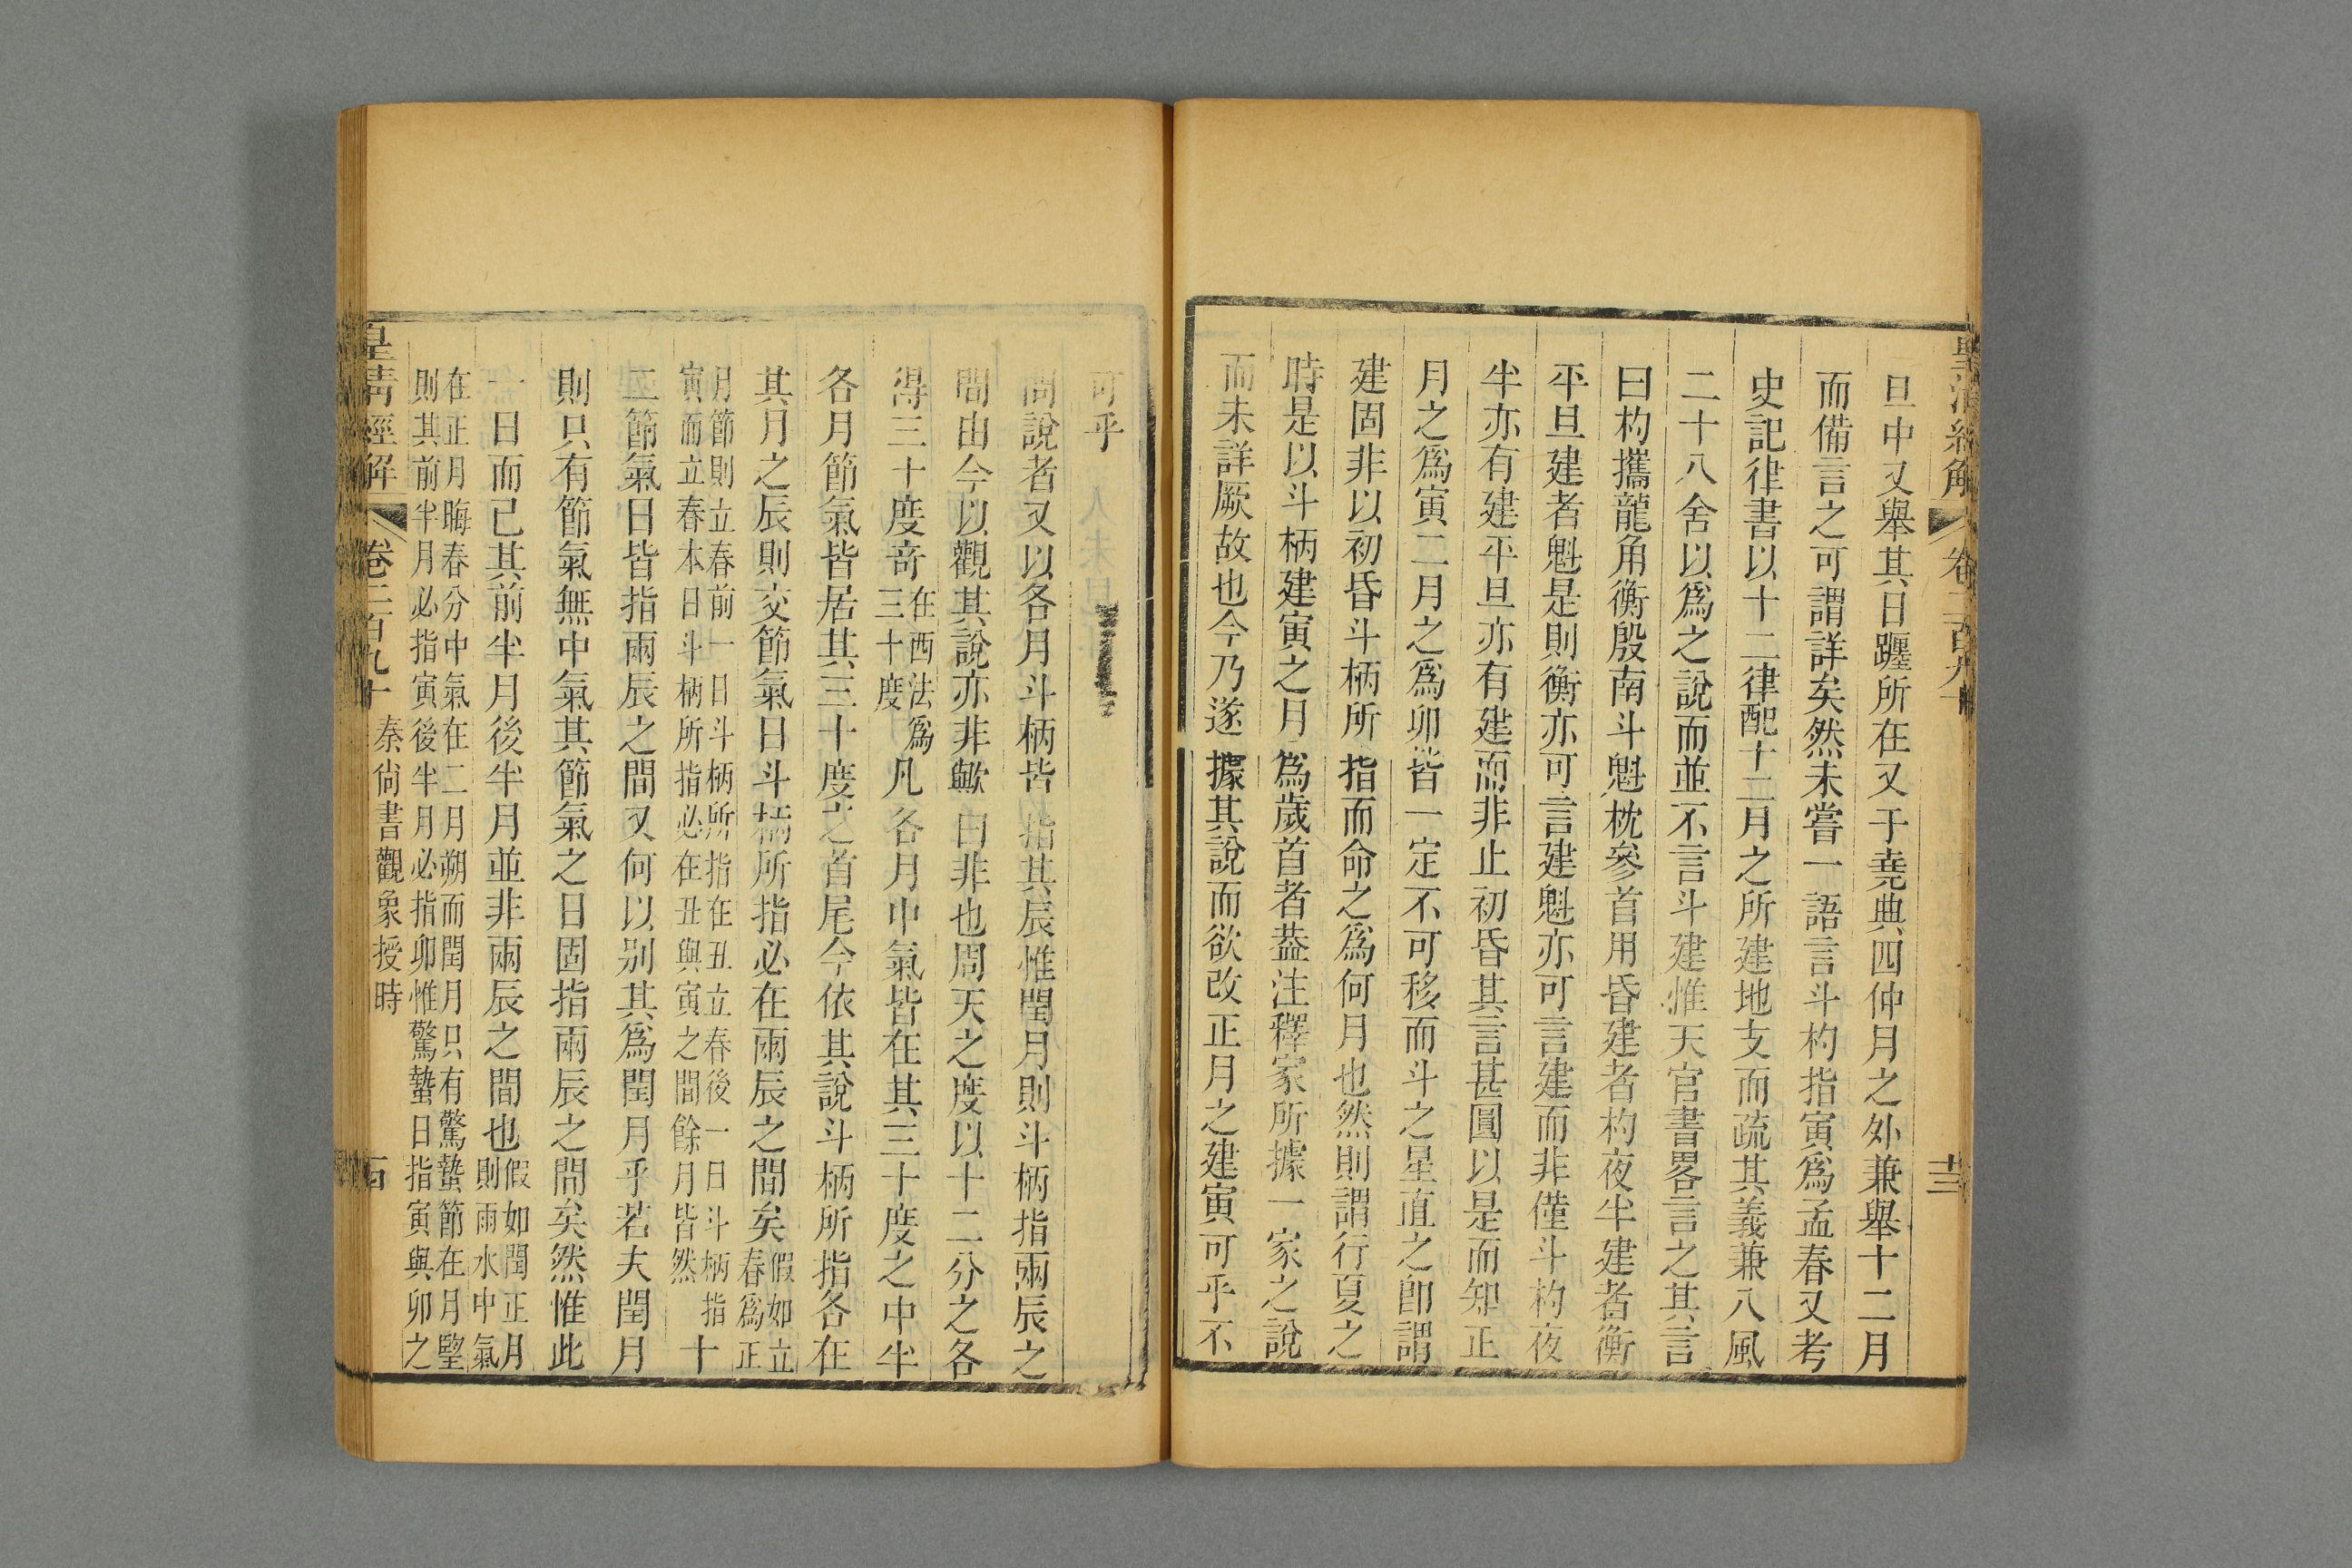 皇清經解
卷二百九十
十三
旦中又舉其日躔所在又于堯典四仲月之外兼舉十二月
而備言之可謂詳矣然未嘗一語言斗杓指寅爲孟春又考
史記律書以十二律配十二月之所建地支而疏其義兼八風
二十八舍以爲之說而並不言斗建惟天官書畧言之其言
曰杓攜龍角衡殷南斗魁枕參首用昏建者杓夜半建者衡
平旦建者魁是則衡亦可言建魁亦可言建而非僅斗杓夜
半亦有建平旦亦有建而非止初昏其言甚圓以是而知正
月之爲寅二月之爲卯皆一定不可移而斗之星直之卽謂
建固非以初昏斗柄所指而命之爲何月也然則謂行夏之
時是以斗柄建寅之月爲歲首者葢注釋家所據一家之說
而未詳厥故也今乃遂據其說而欲改正月之建寅可乎不
可乎
問說者又以各月斗柄皆指其辰惟閏月則斗柄指兩辰之
間由今以觀其說亦非歟曰非也周天之度以十二分之各
得三十度奇在西法爲三十度凡各月中氣皆在其三十度之中半
各月節氣皆居其三十度之首尾今依其說斗柄所指各在
其月之辰則交節氣日斗柄所指必在兩辰之間矣假如立春爲正
月節則立春前一日斗柄所指在丑立春後一日斗柄指寅而立春本日斗柄所指必在丑與寅之間餘月皆然十
二節氣日皆指兩辰之間又何以別其爲閏月乎若夫閏月
則只有節氣無中氣其節氣之日固指兩辰之間矣然惟此
一日而已其前半月後半月並非兩辰之間也假如閏正月則雨水中氣
在正月晦春分中氣在二月朔而閏月只有驚蟄節在月朢則其前半月必指寅後半月必指卯惟驚蟄日指寅與卯之
皇清經解
卷二百九十
秦尙書觀象授時